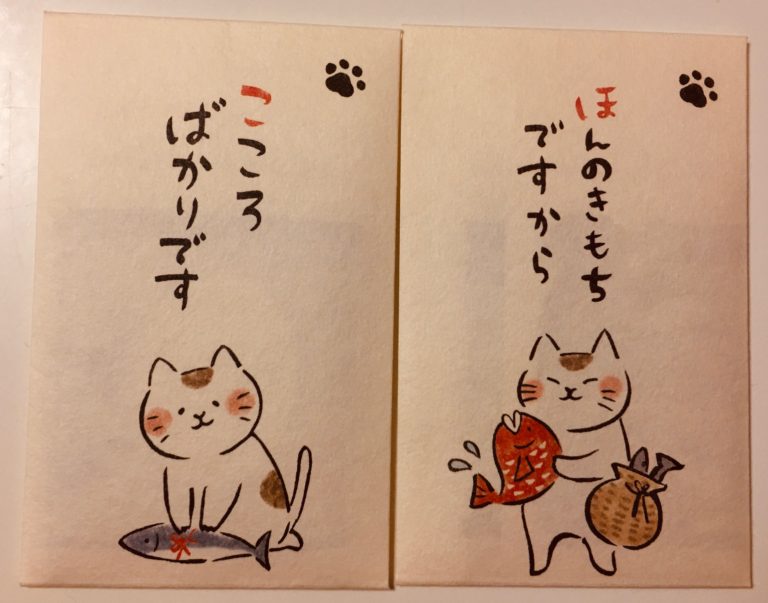 こころ
ばかりです
ほんのきもち
ですから